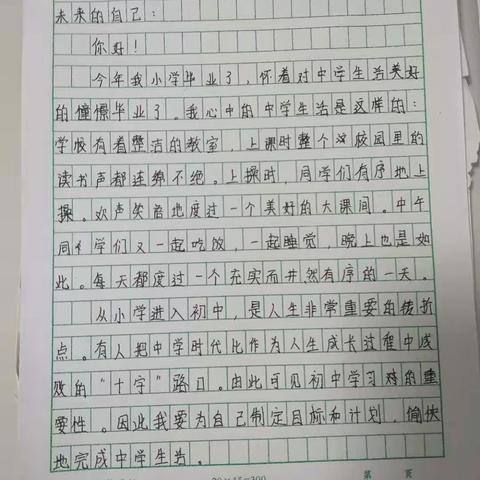 未来的自己：
你好！
今年我小学毕业了，怀着对中学生活美好
的憧憬毕业了。我心中的中学生活是这样的：
学校有着整洁的教室，上课时整个校园里的
读书声都连绵不绝。上操时，同学们有序地上
操。欢声笑语地度过一个美好的大课间。中午
同学们又一起吃饭，一起睡觉，晚上也是如
此。每天都度过一个充实而井然有序的一天。
从小学进入初中，是人生非常重要的转折
点。有人把中学时代比作为人生成长过程中成
败的“十字”路口。由此可见初中学习对的重
要性。因此我要为自己制定目标和计划，愉快
地完成中学生活。
20×15=300
第 页